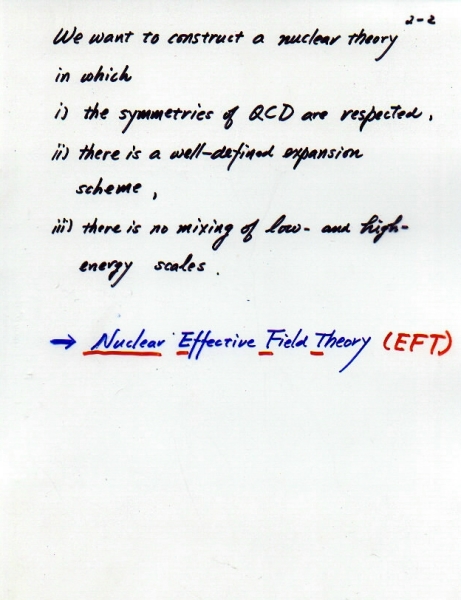 2-2
We want to construct a nuclear theory
in which
i) the symmetries of QCD are respected,
ii) there is a well-defined expansion
scheme,
iii) there is no mixing of low- and high-
energy scales.
→ Nuclear Effective Field Theory (EFT)